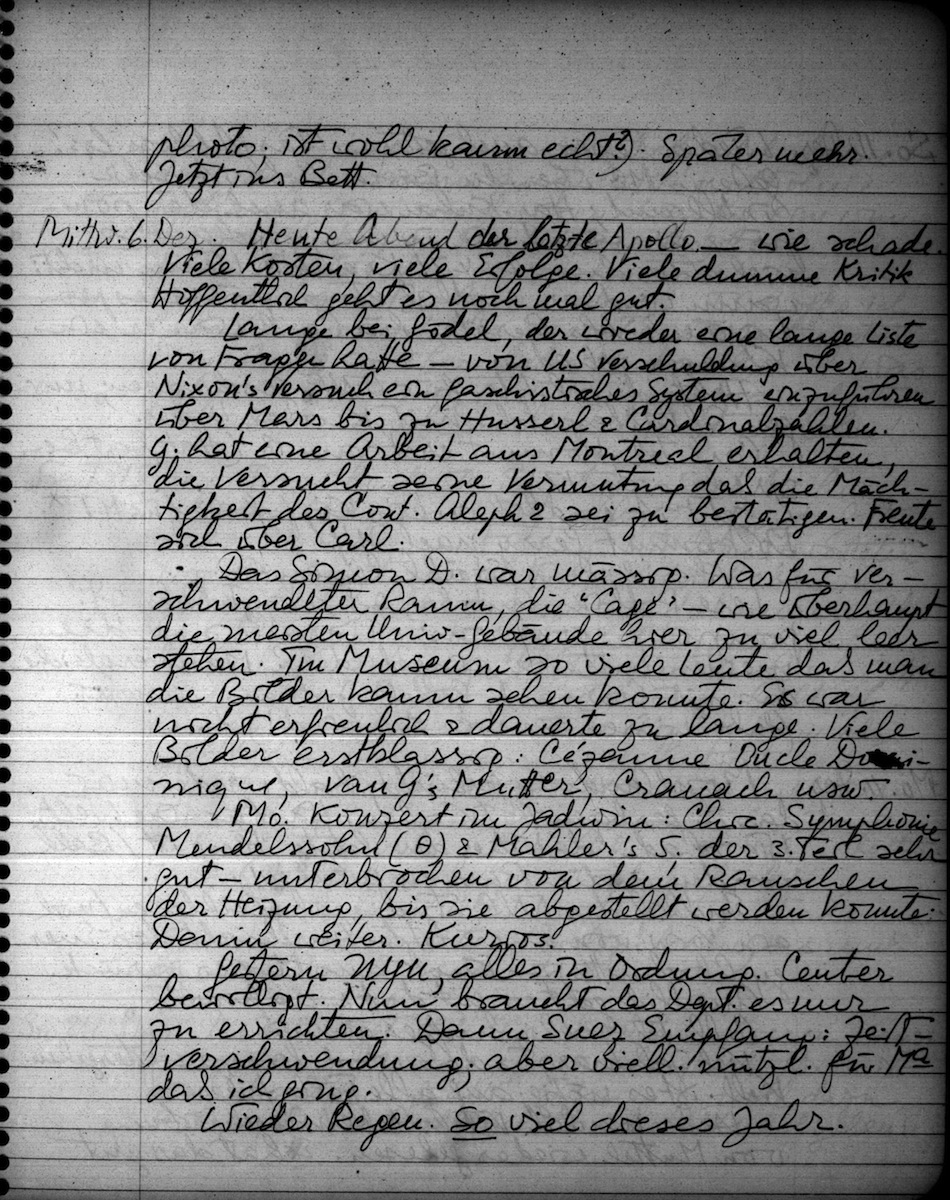 photo; ist wohl kaum echt?). Später mehr.
Jetzt ins Bett.
Mittw. 6. Dez. Heute Abend der letzte Apollo — wie schade.
Viele Kosten, viele Erfolge. Viele dumme Kritik
Hoffentlich geht es noch mal gut.
Lange bei Gödel, der wieder eine lange Liste
von Fragen hatte — von US Verschuldung über
Nixon's Versuch ein faschistisches System einzuführen
über Mars bis zu Husserl & Cardinalzahlen.
G. hat eine Arbeit aus Montreal erhalten,
die versucht seine Vermutung das die Mäch-
tigkeit des Cont. Aleph 2 sei zu bestätigen. Freute
sich über Carl.
Das Simon D. war mässig. Was für ver-
schwendeter Raum, die "Cage" — wie überhaupt
die meisten Univ-Gebäude hier zu viel leer
stehen. Im Museum so viele Leute das man
die Bilder kaum sehen konnte. Es war
nicht erfreulich & dauerte zu lange. Viele
Bilder erstklassig: Cézanne Oncle Domi-
nique, van G's Mutter, Cranach usw.
Mo. Konzert im Jadwin: Chic. Symphonie
Mendelssohn (θ) & Mahler's 5. der 3. Teil sehr
gut — unterbrochen von dem Rauschen
der Heizung, bis sie abgestellt werden konnte.
Dann weiter. Kurios.
Gestern NYU, alles in Ordnung. Center
bewilligt. Nun braucht das Dept. es nur
zu errichten. Dann Empfang: Zeit-
verschwendung, aber viell. nützl. für
das ich ging.
Wieder Regen. So viel dieses Jahr.